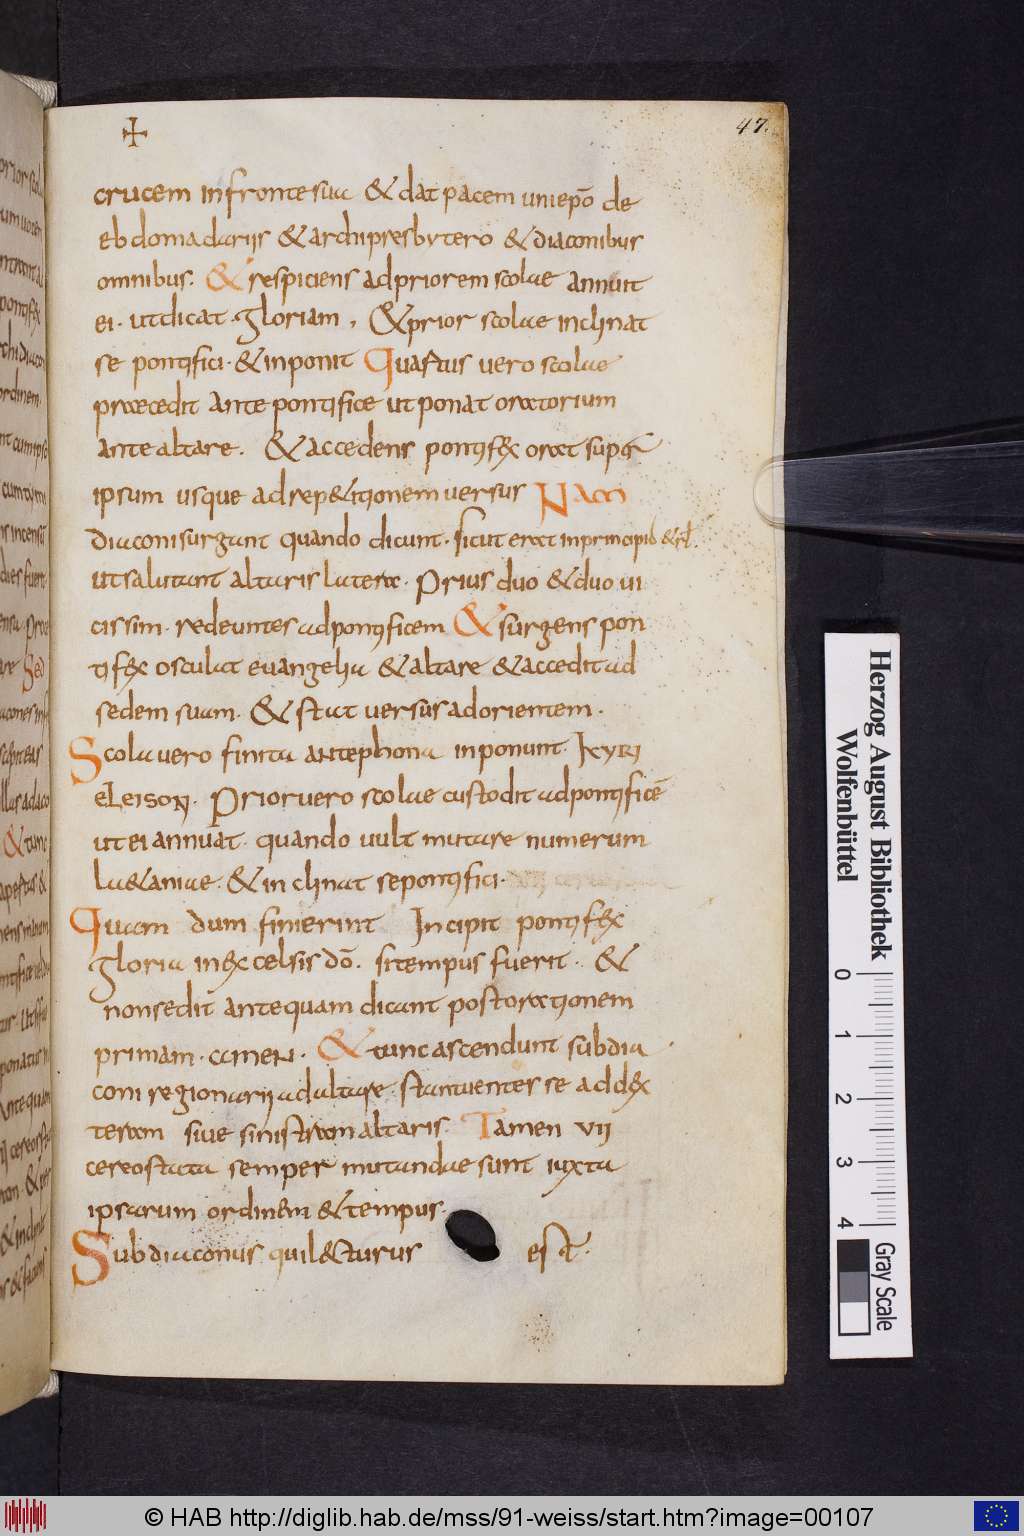 47.
crucem in fronte sua & dat pacem uni epō de
ebdomadariis & archipresbytero & diaconibus
omnibus. & respiciens ad priorem scolae annuit
ei. ut dicat. gloriam, & prior scolae inclinat
se pontifici. & inponit Quartus vero scolae
praecedit ante pontifice ut ponat oratorium
ante altare. & accedens pontifex orat super
ipsum usque ad rep&itionem versus Nam
diaconi surgunt quando dicunt. sicut erat in principio & rl.
ut salutant altaris latera. Prius duo & duo vi
cissim. redeuntes ad pontificem & surgens pon
tifex osculat euangelia & altare & accedit ad
sedem suam. & stat versus ad orientem.
Scola vero finita antephona inponunt. Kyri
eLeison. Prior vero scolae custodit ad pontificē
ut ei annuat. quando vult mutare numerum
la&aniae. & inclinat se pontifici.
Quam dum finierint Incipit pontifex
gloria in excelsis dō. si tempus fuerit. &
non sedit antequam dicant post orationem
primam. amen. & tunc ascendunt subdia
coni regionarii ad altare. statuentes se ad dex
teram sive sinistram altaris. Tamen vii
cereostata semper mutandae sunt iuxta
ipsarum ordinem & tempus.
Subdiaconus qui l&turus est.
Herzog August Bibliothek
Wolfenbüttel
0 1 2 3 4
Gray Scale
© HAB http://diglib.hab.de/mss/91-weiss/start.htm?image=00107